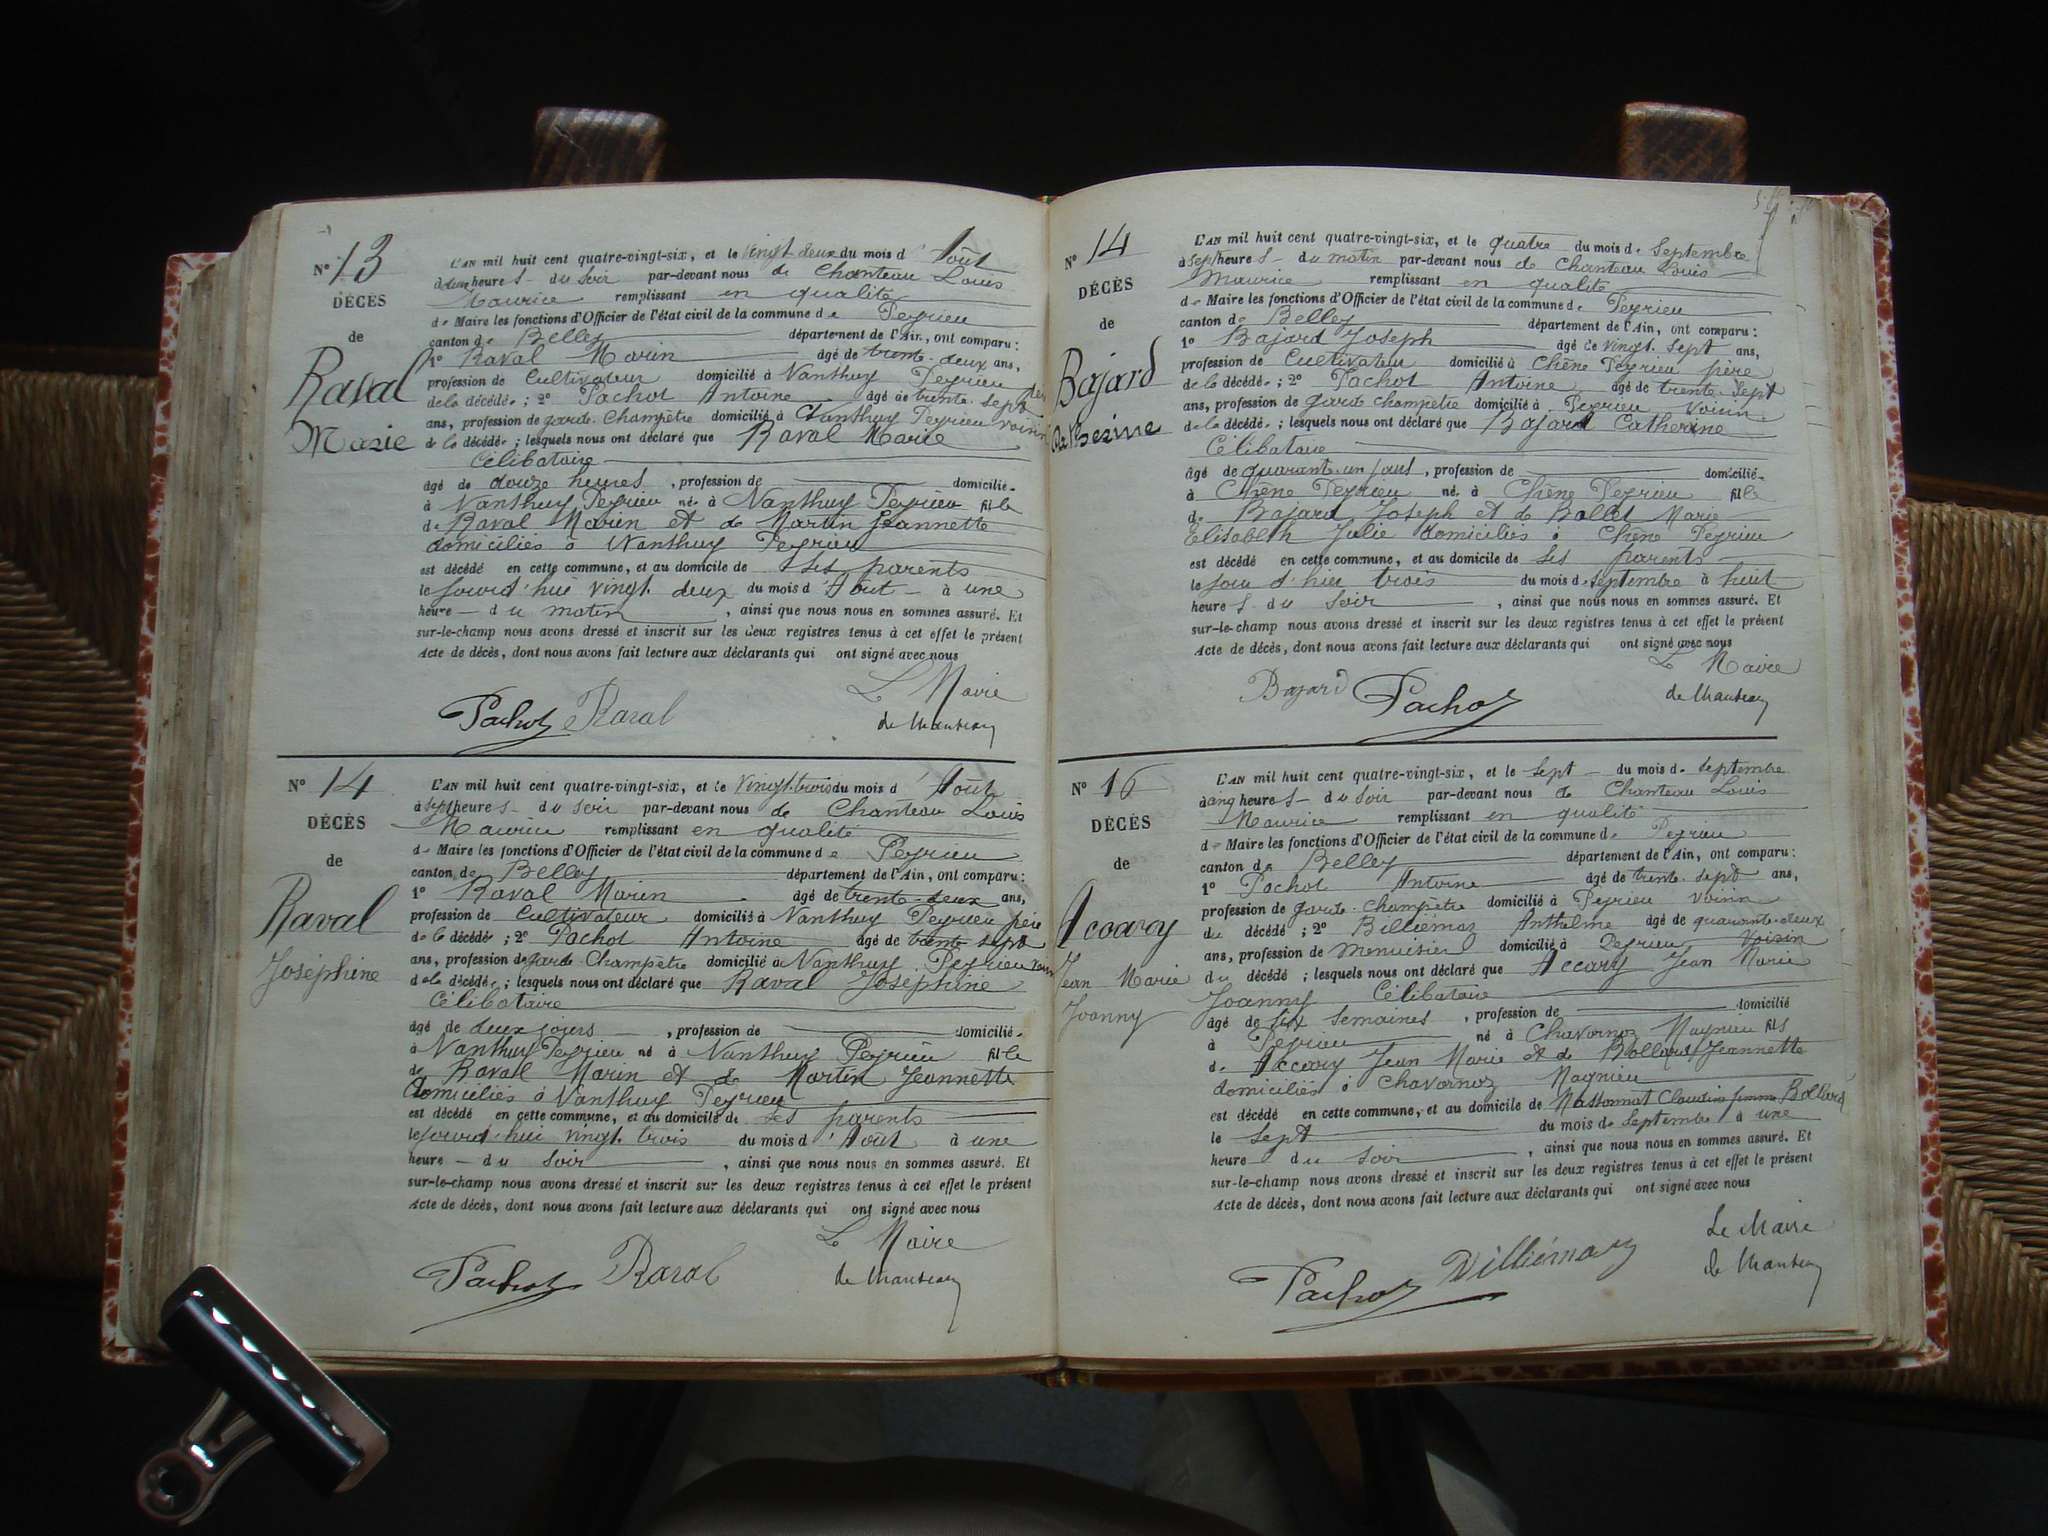 N° 13
DÉCÈS
de
Raval
Marie
L'AN mil huit cent quatre-vingt-six, et le vingt-deux du mois d'Août
à deux heures du soir par-devant nous de Chanteau Louis
Maurice remplissant en qualité
de Maire les fonctions d'Officier de l'état civil de la commune de Peyrieu
canton de Belley département de l'Ain, ont comparu :
1° Raval Marin âgé de trente-deux ans,
profession de Cultivateur domicilié à Nanthuy Peyrieu père
de la décédée ; 2° Pachot Antoine âgé de trente-sept
ans, profession de garde-Champêtre domicilié à Nanthuy Peyrieu voisin
de la décédée ; lesquels nous ont déclaré que Raval Marie
Célibataire
âgé de douze heures, profession de domicilié-
à Nanthuy Peyrieu né à Nanthuy Peyrieu fille
de Raval Marin et de Martin Jeannette
domiciliés à Nanthuy Peyrieu
est décédé en cette commune, et au domicile de ses parents
le jourd'hui vingt-deux du mois d'Août à une
heure du matin, ainsi que nous nous en sommes assuré. Et
sur-le-champ nous avons dressé et inscrit sur les deux registres tenus à cet effet le présent
Acte de décès, dont nous avons fait lecture aux déclarants qui ont signé avec nous
Le Maire
Pachot Raval de Chanteau
N° 14
DÉCÈS
de
Raval
Joséphine
L'AN mil huit cent quatre-vingt-six, et le vingt-trois du mois d'Août
à sept heures du soir par-devant nous de Chanteau Louis
Maurice remplissant en qualité
de Maire les fonctions d'Officier de l'état civil de la commune de Peyrieu
canton de Belley département de l'Ain, ont comparu :
1° Raval Marin âgé de trente-deux ans,
profession de Cultivateur domicilié à Nanthuy Peyrieu père
de la décédée ; 2° Pachot Antoine âgé de trente-sept
ans, profession de garde-Champêtre domicilié à Nanthuy Peyrieu voisin
de la décédée ; lesquels nous ont déclaré que Raval Joséphine
Célibataire
âgé de deux jours, profession de domicilié-
à Nanthuy Peyrieu né à Nanthuy Peyrieu fille
de Raval Marin et de Martin Jeannette
domiciliés à Nanthuy Peyrieu
est décédé en cette commune, et au domicile de ses parents
le jourd'hui vingt-trois du mois d'Août à une
heure du soir, ainsi que nous nous en sommes assuré. Et
sur-le-champ nous avons dressé et inscrit sur les deux registres tenus à cet effet le présent
Acte de décès, dont nous avons fait lecture aux déclarants qui ont signé avec nous
Le Maire
Pachot Raval de Chanteau
N° 14
DÉCÈS
de
Bajard
Catherine
L'AN mil huit cent quatre-vingt-six, et le quatre du mois de Septembre
à sept heures du matin par-devant nous de Chanteau Louis
Maurice remplissant en qualité
de Maire les fonctions d'Officier de l'état civil de la commune de Peyrieu
canton de Belley département de l'Ain, ont comparu :
1° Bajard Joseph âgé de vingt-sept ans,
profession de Cultivateur domicilié à Chêne Peyrieu père
de la décédée ; 2° Pachot Antoine âgé de trente-sept
ans, profession de garde champêtre domicilié à Peyrieu voisin
de la décédée ; lesquels nous ont déclaré que Bajard Catherine
Célibataire
âgé de quarante-un jours, profession de domicilié-
à Chêne Peyrieu né à Chêne Peyrieu fille
de Bajard Joseph et de Ballet Marie
Elisabeth Julie domiciliés à Chêne Peyrieu
est décédé en cette commune, et au domicile de ses parents
le jour d'hier trois du mois de septembre à huit
heures du soir, ainsi que nous nous en sommes assuré. Et
sur-le-champ nous avons dressé et inscrit sur les deux registres tenus à cet effet le présent
Acte de décès, dont nous avons fait lecture aux déclarants qui ont signé avec nous
Le Maire
Bajard Pachot de Chanteau
N° 16
DÉCÈS
de
Accary
Jean Marie
Joanny
L'AN mil huit cent quatre-vingt-six, et le sept du mois de septembre
à cinq heures du soir par-devant nous de Chanteau Louis
Maurice remplissant en qualité
de Maire les fonctions d'Officier de l'état civil de la commune de Peyrieu
canton de Belley département de l'Ain, ont comparu :
1° Pachot Antoine âgé de trente-sept ans,
profession de garde-champêtre domicilié à Peyrieu voisin
du décédé ; 2° Billiémaz Anthelme âgé de quarante-deux
ans, profession de Menuisier domicilié à Peyrieu voisin
du décédé ; lesquels nous ont déclaré que Accary Jean Marie
Joanny Célibataire
âgé de six semaines, profession de domicilié
à Peyrieu né à Chavornoz Magnieu fils
de Accary Jean Marie et de Bollard Jeannette
domiciliés à Chavornoz Magnieu
est décédé en cette commune, et au domicile de Massonnat Claudine femme Bollard
le sept du mois de septembre à une
heure du soir, ainsi que nous nous en sommes assuré. Et
sur-le-champ nous avons dressé et inscrit sur les deux registres tenus à cet effet le présent
Acte de décès, dont nous avons fait lecture aux déclarants qui ont signé avec nous
Le Maire
Pachot Billiémaz de Chanteau